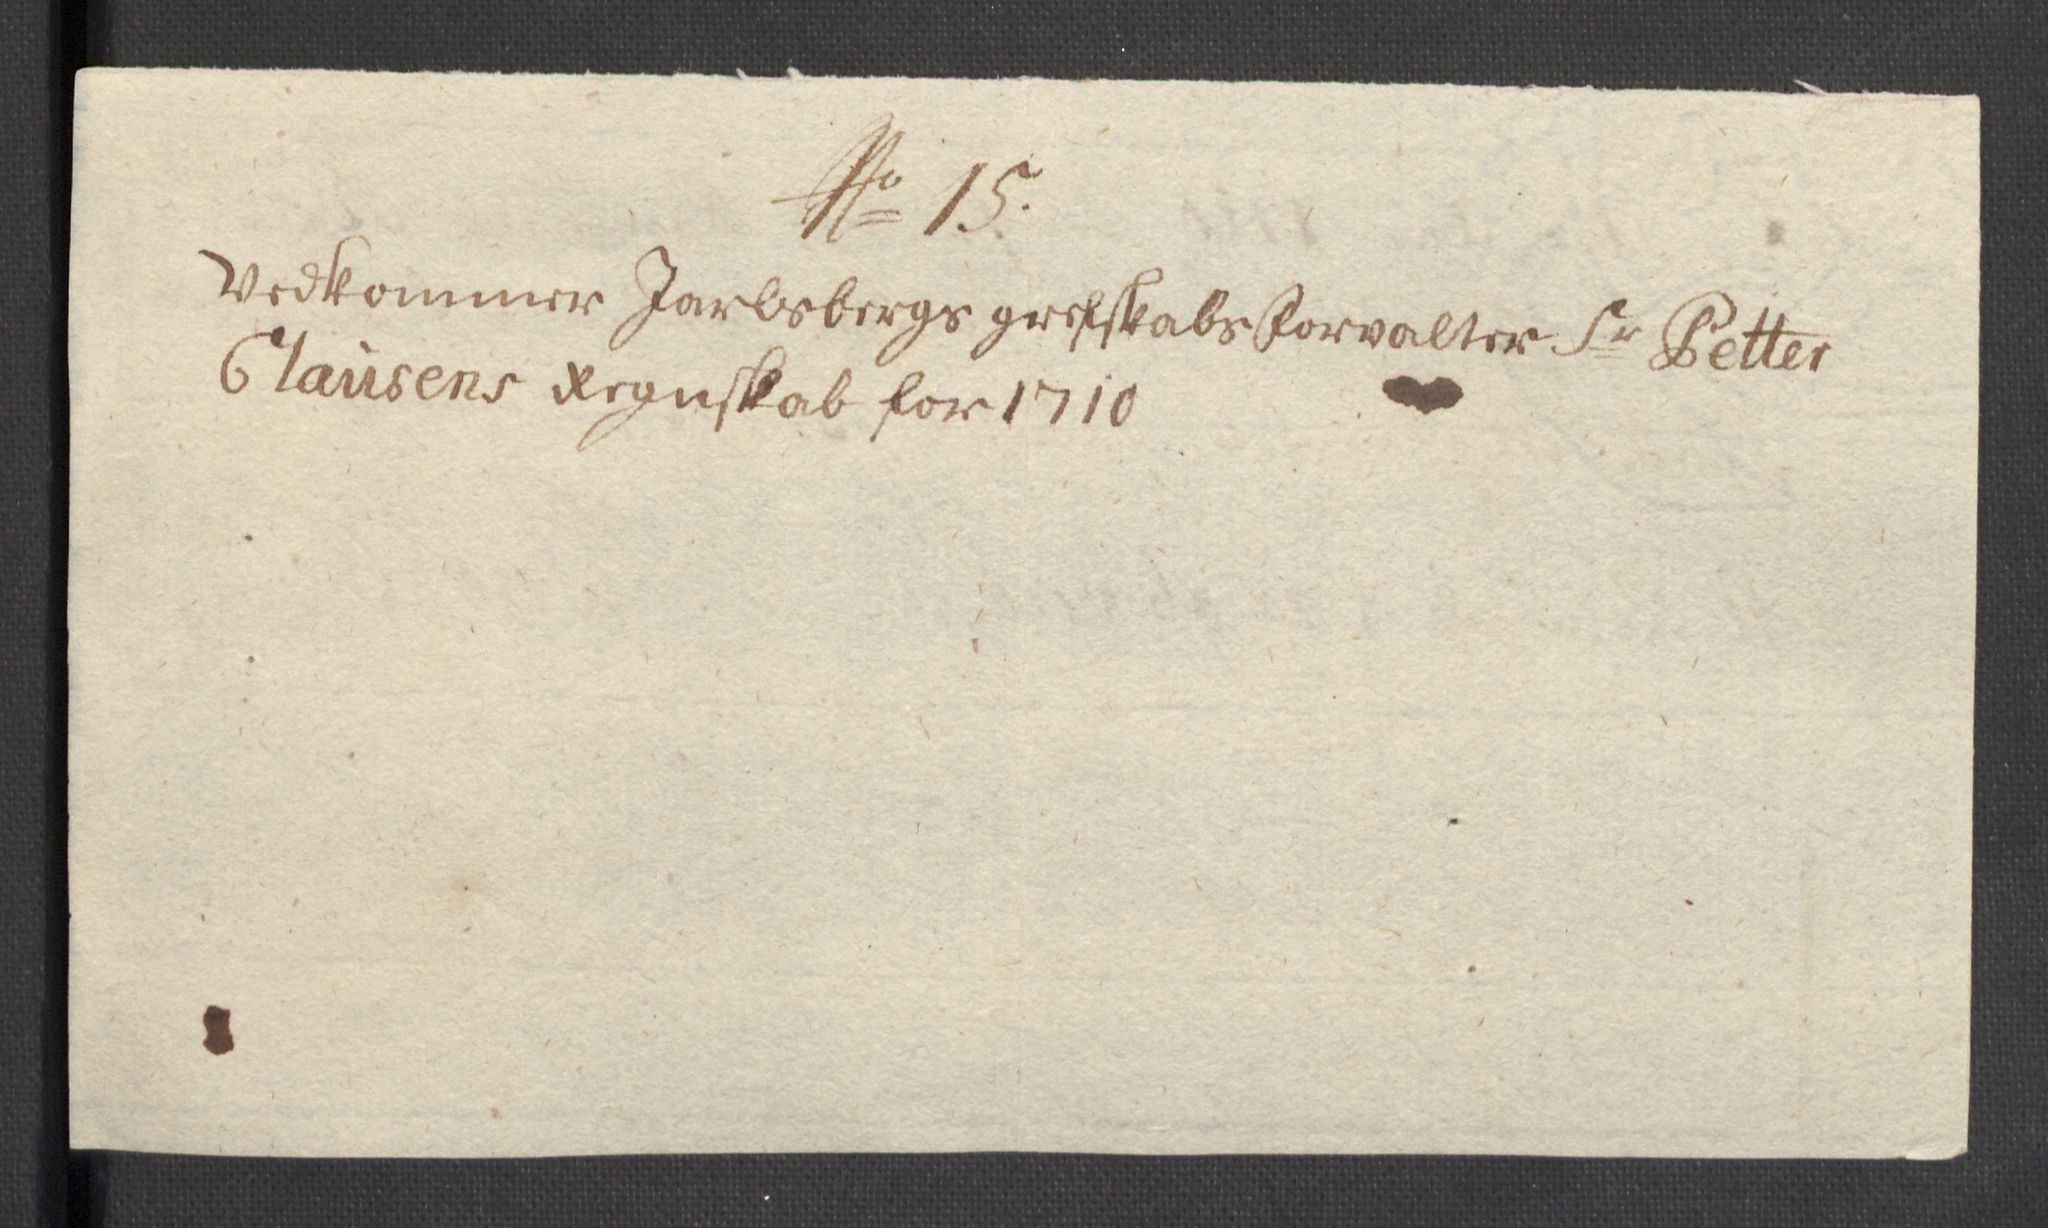 No 15.
Vedkommer Jarlsbergs grefskabs Forvalter Sr Petter
Clausens Regnskab for 1710